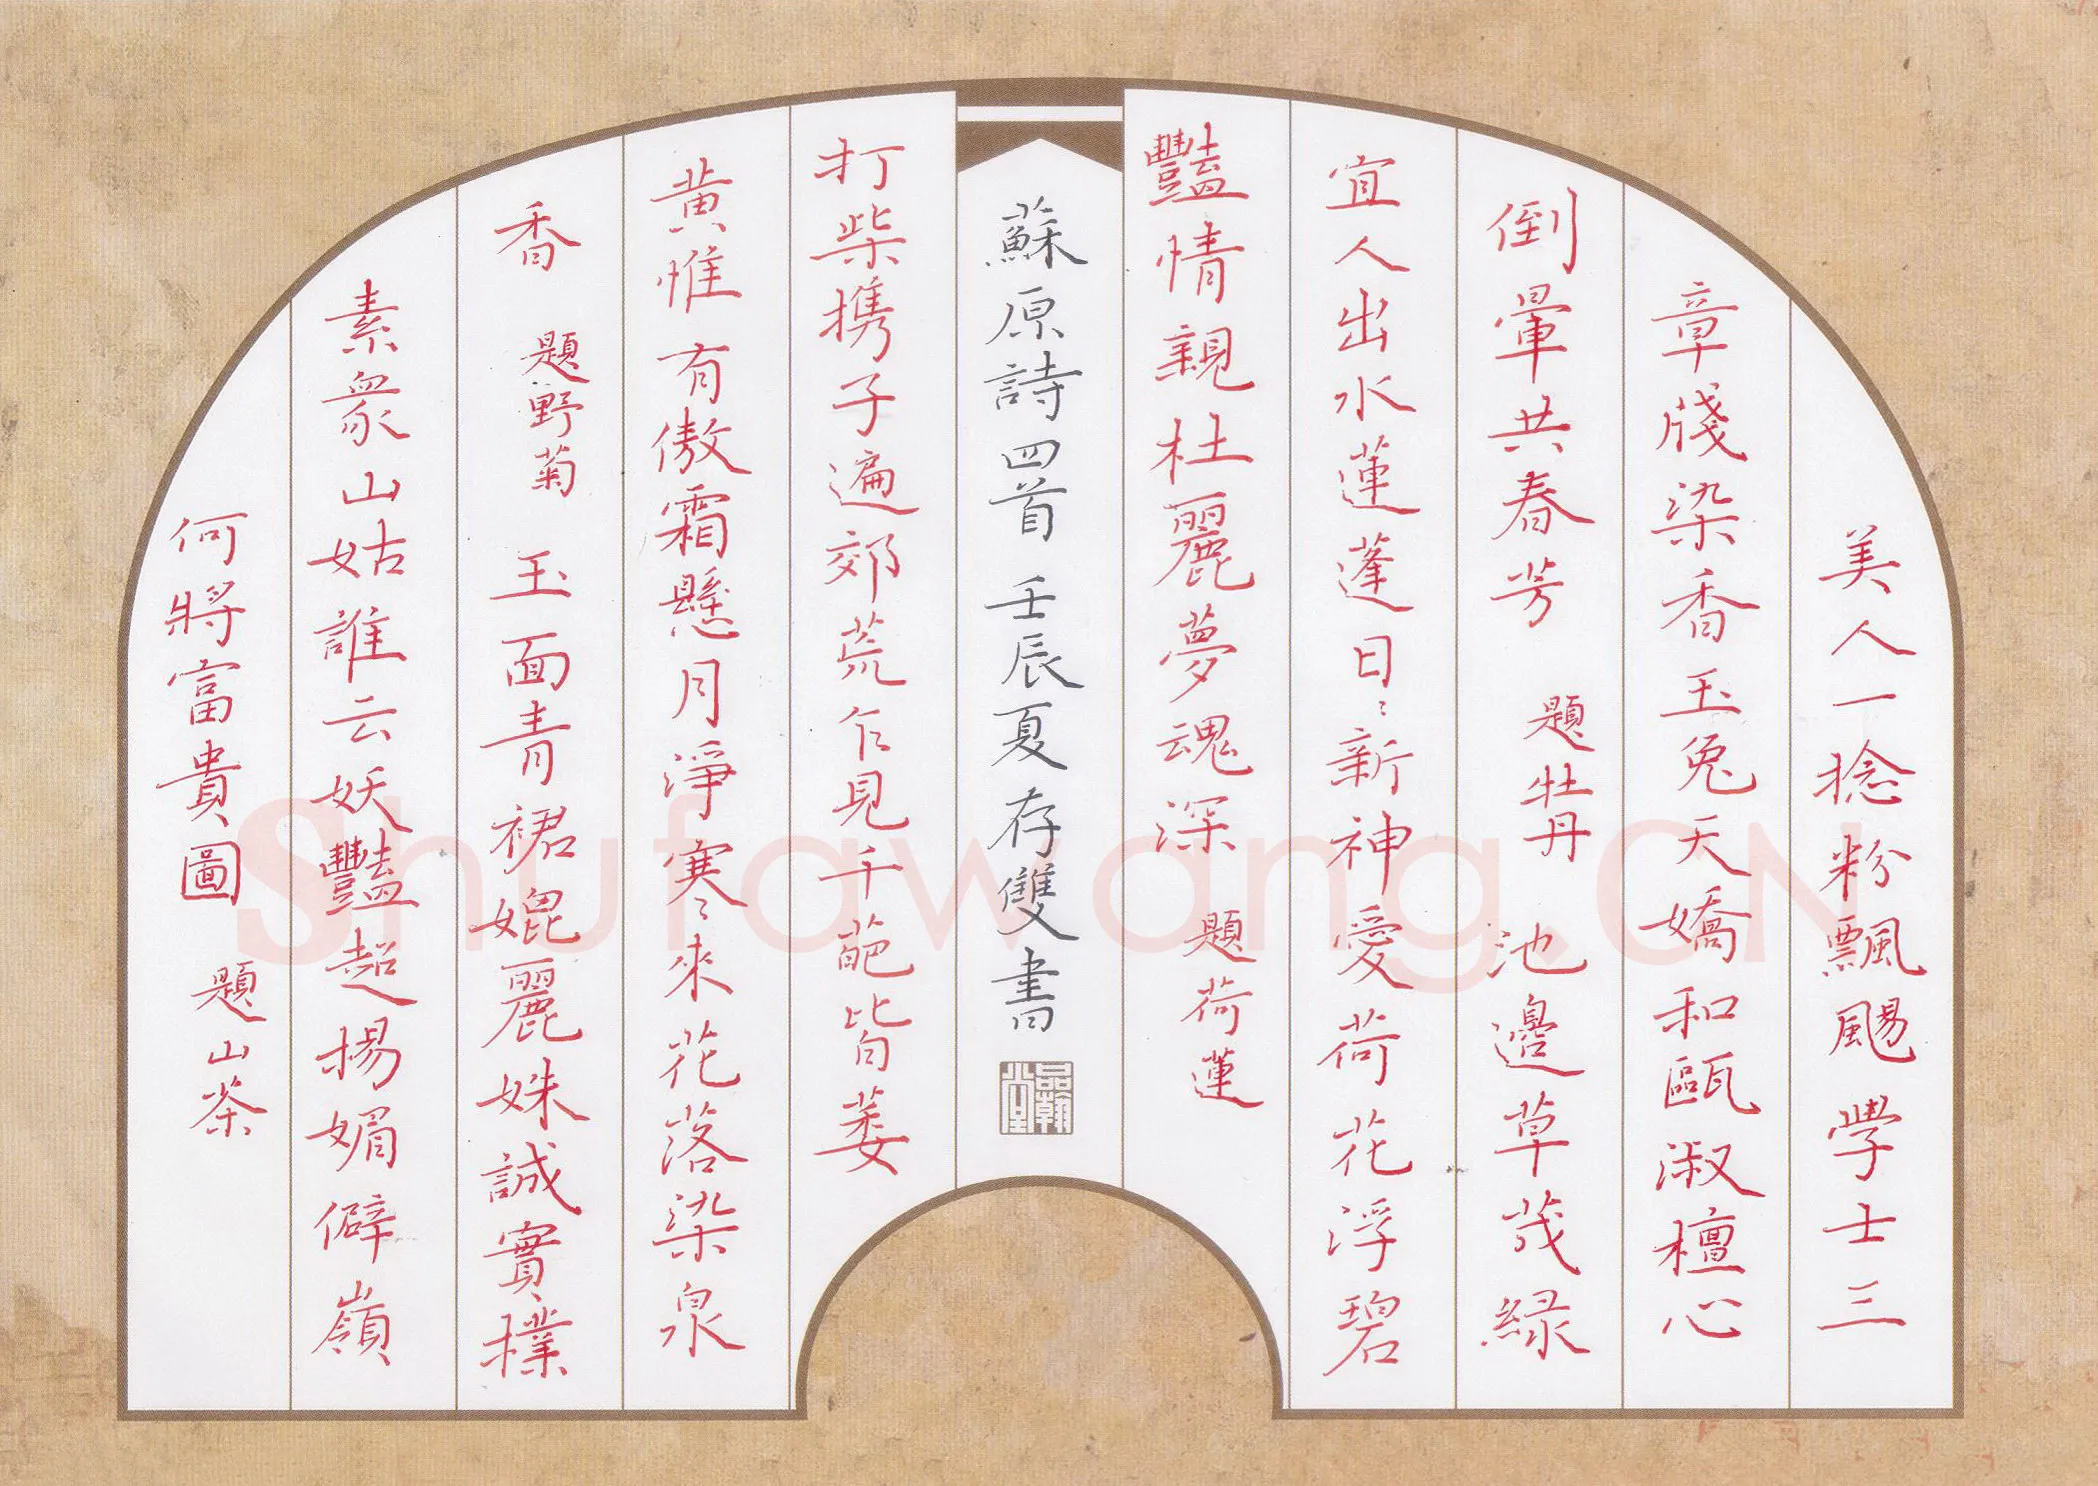 美人一捻粉飄颺學士三
章牋染香玉兔天嬌和甌淑檀心
倒暈共春芳 題牡丹 池邊草茂緑
宜人出水蓮蓬日〻新神愛荷花浮碧
豔情親杜麗夢魂深 題荷蓮
蘇原詩四首 壬辰夏存雙書
品翰堂
打柴携子遍郊荒乍見千葩皆萎
黄惟有傲霜懸月淨寒〻來花落染泉
香 題野菊 玉面青裙媲麗姝誠實樸
素衆山姑誰云妖豔超楊媚僻嶺
何將富貴圖 題山茶
Shufawang.CN